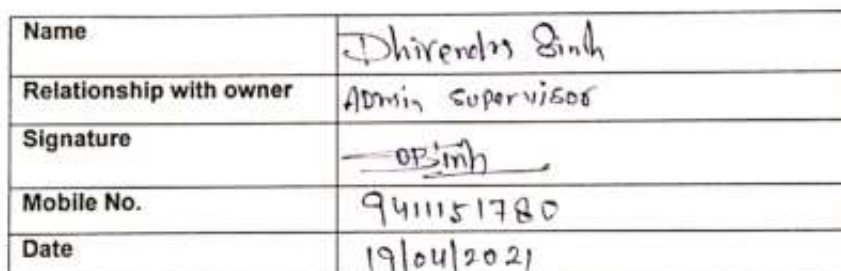 Name Dhirendra Sinh
Relationship with owner Admin supervisor
Signature DPSinh
Mobile No. 9411151780
Date 19/04/2021